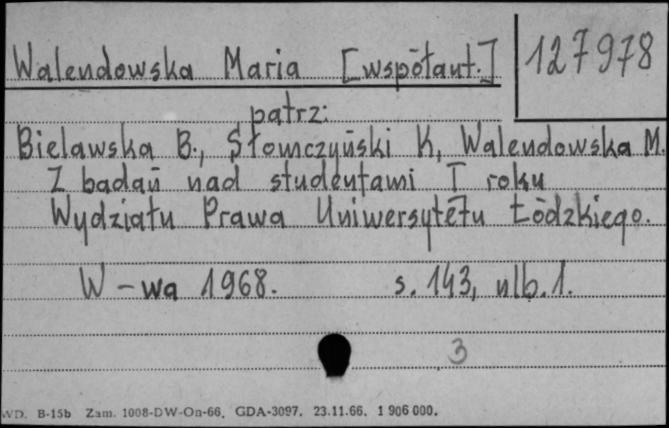 Walendowska Maria [współaut.] 127978
patrz:
Bielawska B., Słomczyński K, Walendowska M.
Z badań nad studentami I roku
Wydziału Prawa Uniwersytetu Łódzkiego.
W-wa 1968. s. 143, nlb. 1.
3
WD. B-15b Zam. 1008-DW-On-66. GDA-3097. 23.11.66. 1 906 000.